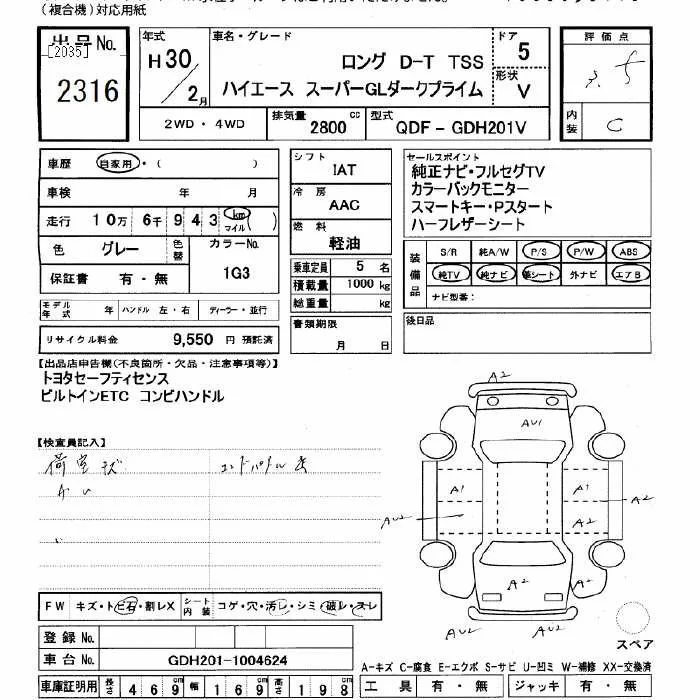 (複合機)対応用紙
出品No.
[2035]
2316
年式
H30/2月
車名・グレード
ロング D-T TSS
ハイエース スーパーGLダークプライム
ドア
5
形状
V
評価点
3.5
内装
C
2WD・4WD
排気量 2800 cc
型式 QDF-GDH201V
車歴 自家用・( )
車検 年 月
走行 10万 6千 9 4 3 km マイル ( )
色 グレー 色替 カラーNo.
1G3
保証書 有・無
モデル年式 年 ハンドル 左・右 ディーラー・並行
リサイクル料金 9,550 円 預託済
シフト
IAT
冷房
AAC
燃料
軽油
乗車定員 5 名
積載量 1000 kg
総重量 kg
書類期限
月 日
セールスポイント
純正ナビ・フルセグTV
カラーバックモニター
スマートキー・Pスタート
ハーフレザーシート
装備品
S/R 純A/W P/S P/W ABS
純TV 純ナビ 革シート 外ナビ エアB
ナビ型番:
後日品
【出品店申告欄(不良箇所・欠品・注意事項等)】
トヨタセーフティセンス
ビルトインETC コンビハンドル
【検査員記入】
荷室キズ
エンドパネル
A2
AU1
A1
A1
A2
AU2
A2
A2
A2
AU2
AU2
スペア
FW キズ・トビ石・割レX シート内装 コゲ・穴・汚レ・シミ・破レ・スレ
登録No.
車台No. GDH201-1004624
車庫証明用 長さ 4 6 9 cm 幅 1 6 9 cm 高さ 1 9 8 cm
A-キズ C-腐食 E-エクボ S-サビ U-凹ミ W-補修 XX-交換済
工具 有・無 ジャッキ 有・無